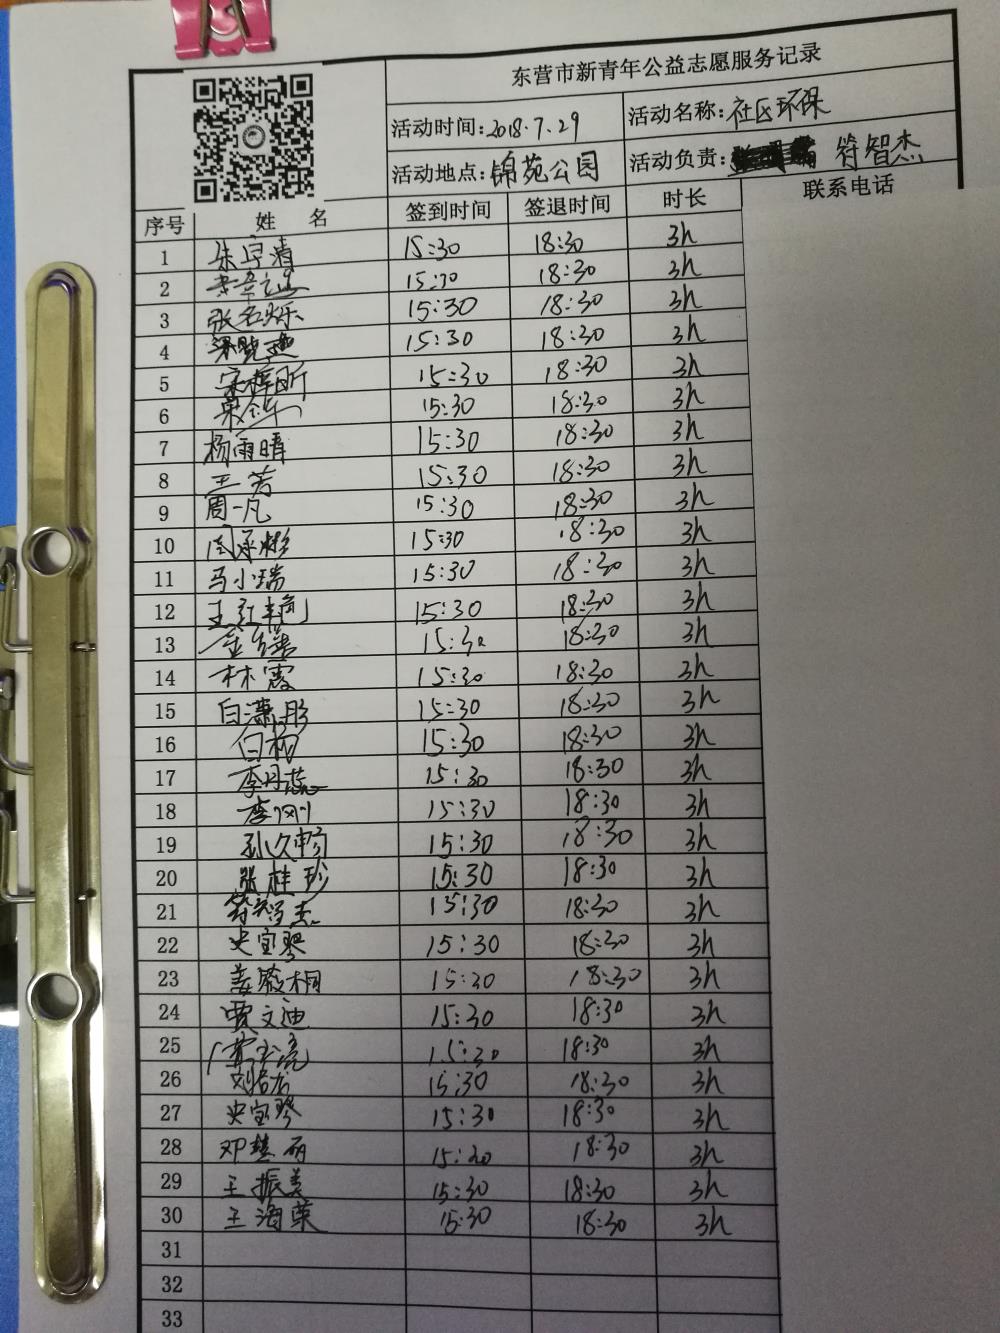 东营市新青年公益志愿服务记录
活动时间:2018.7.29 活动名称:社区环保
活动地点:锦苑公园 活动负责: 符智杰
序号 姓名 签到时间 签退时间 时长 联系电话
1 朱宇清 15:30 18:30 3h
2 15:30 18:30 3h
3 张名烁 15:30 18:30 3h
4 15:30 18:30 3h
5 宋梓昕 15:30 18:30 3h
6 15:30 18:30 3h
7 杨雨晴 15:30 18:30 3h
8 王芳 15:30 18:30 3h
9 周一凡 15:30 18:30 3h
10 15:30 18:30 3h
11 马小瑞 15:30 18:30 3h
12 王红艳 15:30 18:30 3h
13 15:30 18:30 3h
14 林霞 15:30 18:30 3h
15 白潇彤 15:30 18:30 3h
16 白杨 15:30 18:30 3h
17 李丹蕊 15:30 18:30 3h
18 李刚 15:30 18:30 3h
19 孙久畅 15:30 18:30 3h
20 张桂珍 15:30 18:30 3h
21 符智杰 15:30 18:30 3h
22 史宝琴 15:30 18:30 3h
23 姜薇桐 15:30 18:30 3h
24 贾文迪 15:30 18:30 3h
25 15:30 18:30 3h
26 15:30 18:30 3h
27 史宝琴 15:30 18:30 3h
28 邓慧丽 15:30 18:30 3h
29 王振美 15:30 18:30 3h
30 王海荣 15:30 18:30 3h
31
32
33